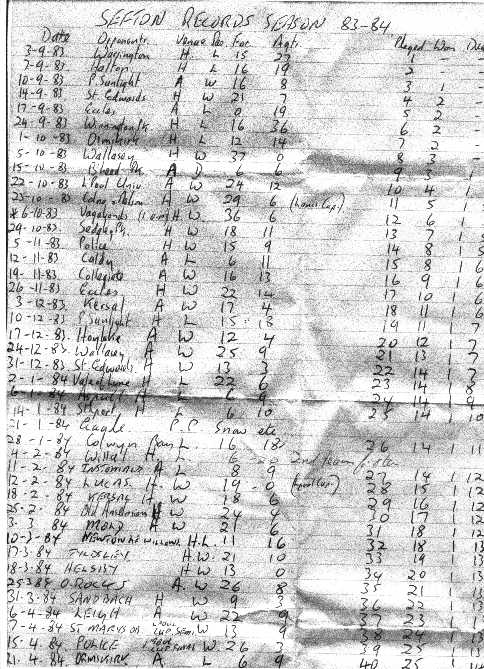 SEFTON RECORDS SEASON 83-84
Date Opponents Venue Res. For Agt. Played Won
3-9-83 Warrington H L 15 23 1 - -
7-9-83 Halton H L 16 19 2 - -
10-9-83 P. Sunlight A W 16 8 3 1 -
14-9-83 St Edwards H W 21 7 4 2 -
17-9-83 Eccles A L 0 19 5 2
24-9-83 H L 16 36 6 2 -
1-10-83 Ormskirk H L 12 14 7 2 -
5-10-83 Wallasey H W 37 0 8 3 -
15-10-83 B'head Pk. A D 6 6 9 3 1
22-10-83 L'Pool Univ A W 24 12 10 4 1
23-10-83 A W 29 6 (Lancs Cup) 11 5 1
* 6-10-83 Vagabonds H W 36 6 12 6 1
29-10-83 Sedgley Pk. H W 18 11 13 7 1
5-11-83 Police H W 15 9 14 8 1
12-11-83 Caldy A L 6 11 15 8 1 6
19-11-83 Collegiate A W 16 13 16 9 1 6
26-11-83 Eccles H W 22 14 17 10 1 6
3-12-83 Kersal A W 17 4 18 11 1 6
10-12-83 P. Sunlight H L 15 18 19 11 1 7
17-12-83 Hoylake A W 12 4 20 12 1 7
24-12-83 Wallasey A W 25 9 21 13 1 7
31-12-83 St Edwards H W 13 3 22 14 1 7
2-1-84 Vale of Lune H L 22 6 23 14 1 8
6-1-84 H L 6 9 24 14 1 9
14-1-84 Stoport H L 6 10 25 14 1 10
21-1-84 P.P. Snow etc
28-1-84 Colwyn Bay L 16 18 26 14 1 11
4-2-84 H 2nd Team
11-2-84 A L 8 9 27 14 1 12
12-2-84 LUCAS H W 19 0 28 15 1 12
18-2-84 KERSAL H W 18 6 29 16 1 12
25-2-84 Old Anselmians H W 24 4 30 17 1 12
3-3-84 MOLD A W 21 6 31 18 1 12
10-3-84 NEWTON LE WILLOWS H. L 11 16 32 18 1 13
17-3-84 TYLDSLEY H. W. 21 10 33 19 1 13
18-3-84 HELSBY H W 13 0 34 20 1 13
25-3-84 O. ROCKS A. W 26 8 35 21 1
31-3-84 SANDBACH H W 9 3 36 22 1
6-4-84 LEIGH A W 22 9 37 23 1
7-4-84 ST MARYS OB W 13 9 38 24 1
15-4-84 POLICE W. 26 3 39 25 1
21-4-84 ORMSKIRK A L 6 9 40 25 1